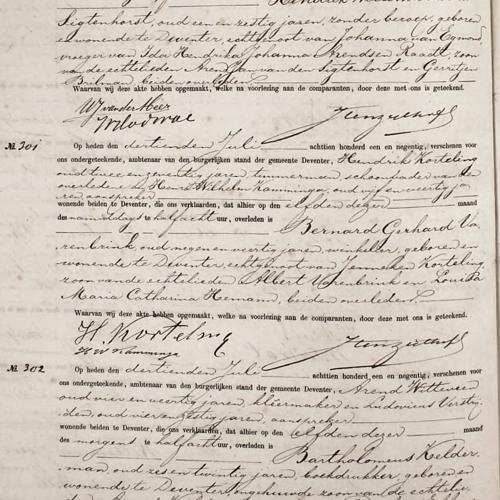 Sigtenhorst, oud een en zestig jaren, zonder beroep, geboren
en wonende te Deventer, echtgenoot van Johanna van Egmond,
vroeger van Ida Hendrika Johanna Arendsen Raadt, zoon
van de echtelieden Arend Jan van den Sigtenhorst en Gerritjen
Bulman, beiden overleden.
Waarvan wij deze akte hebben opgemaakt, welke na voorlezing aan de comparanten, door deze met ons is geteekend.
WJ vander Meer
№ 301 Op heden den dertienden Juli achttien honderd een en negentig, verschenen voor
ons ondergeteekende, ambtenaar van den burgerlijken stand der gemeente Deventer, Hendrik Korteling
oud twee en zeventig jaren, timmerman, schoonvader van den
overledene en Hendrik Wilhelm Kamminga, oud vijf en veertig ja
ren aanspreker
wonende beiden te Deventer, die ons verklaarden, dat alhier op den elfden dezer maand
des namiddags te half acht uur, overleden is Bernard Gerhard Va
renbrink, oud negen en veertig jaren, winkelier, geboren en
wonende te Deventer, echtgenoot van Jenneken Korteling,
zoon van de echtelieden Albert Varenbrink en Louisa
Maria Catharina Hemann, beiden overleden.
Waarvan wij deze akte hebben opgemaakt, welke na voorlezing aan de comparanten, door deze met ons is geteekend.
H. Korteling
HW Kamminga
№ 302 Op heden den dertienden Juli achttien honderd een en negentig, verschenen voor
ons ondergeteekende, ambtenaar van den burgerlijken stand der gemeente Deventer, Arend Witteveen
oud vier en veertig jaren, kleermaker en Ludovicus Verstrij
den, oud vier en zestig jaren, aanspreker
wonende beiden te Deventer, die ons verklaarden, dat alhier op den elfden dezer maand
des morgens te half acht uur, overleden is Bartholomeus Kelder
man, oud zes en twintig jaren, boekdrukker, geboren en
wonende te Deventer, ongehuwde zoon van de echtelie